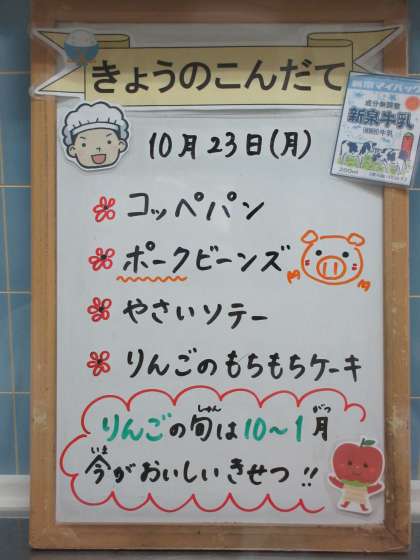 きょうのこんだて
10月23日(月)
コッペパン
ポークビーンズ
やさいソテー
りんごのもちもちケーキ
りんごの旬は10〜1月
しゅん
がつ
今がおいしいきせつ!!
いま
成分無調整
新泉牛乳
200ml